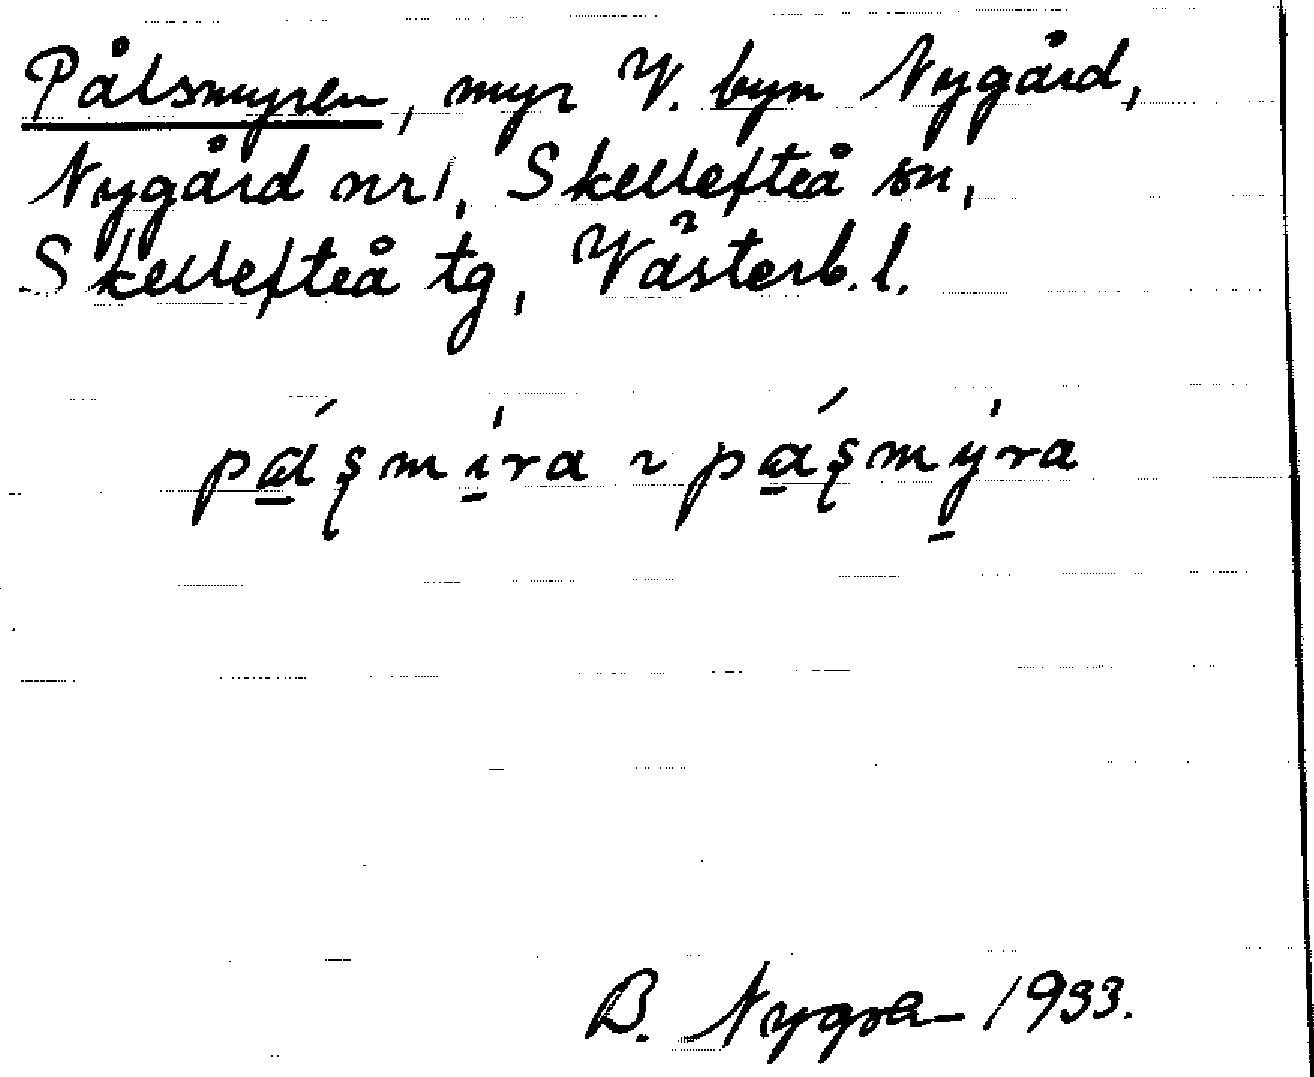 Pålsmyren, myr V. byn Nygård,
Nygård nr 1, Skellefteå sn,
Skellefteå tg, Västerb. l.
pa̱´ʂmi̱̍ra ~ pa̱´ʂmy̱̍ra
B. Nygren 1933.